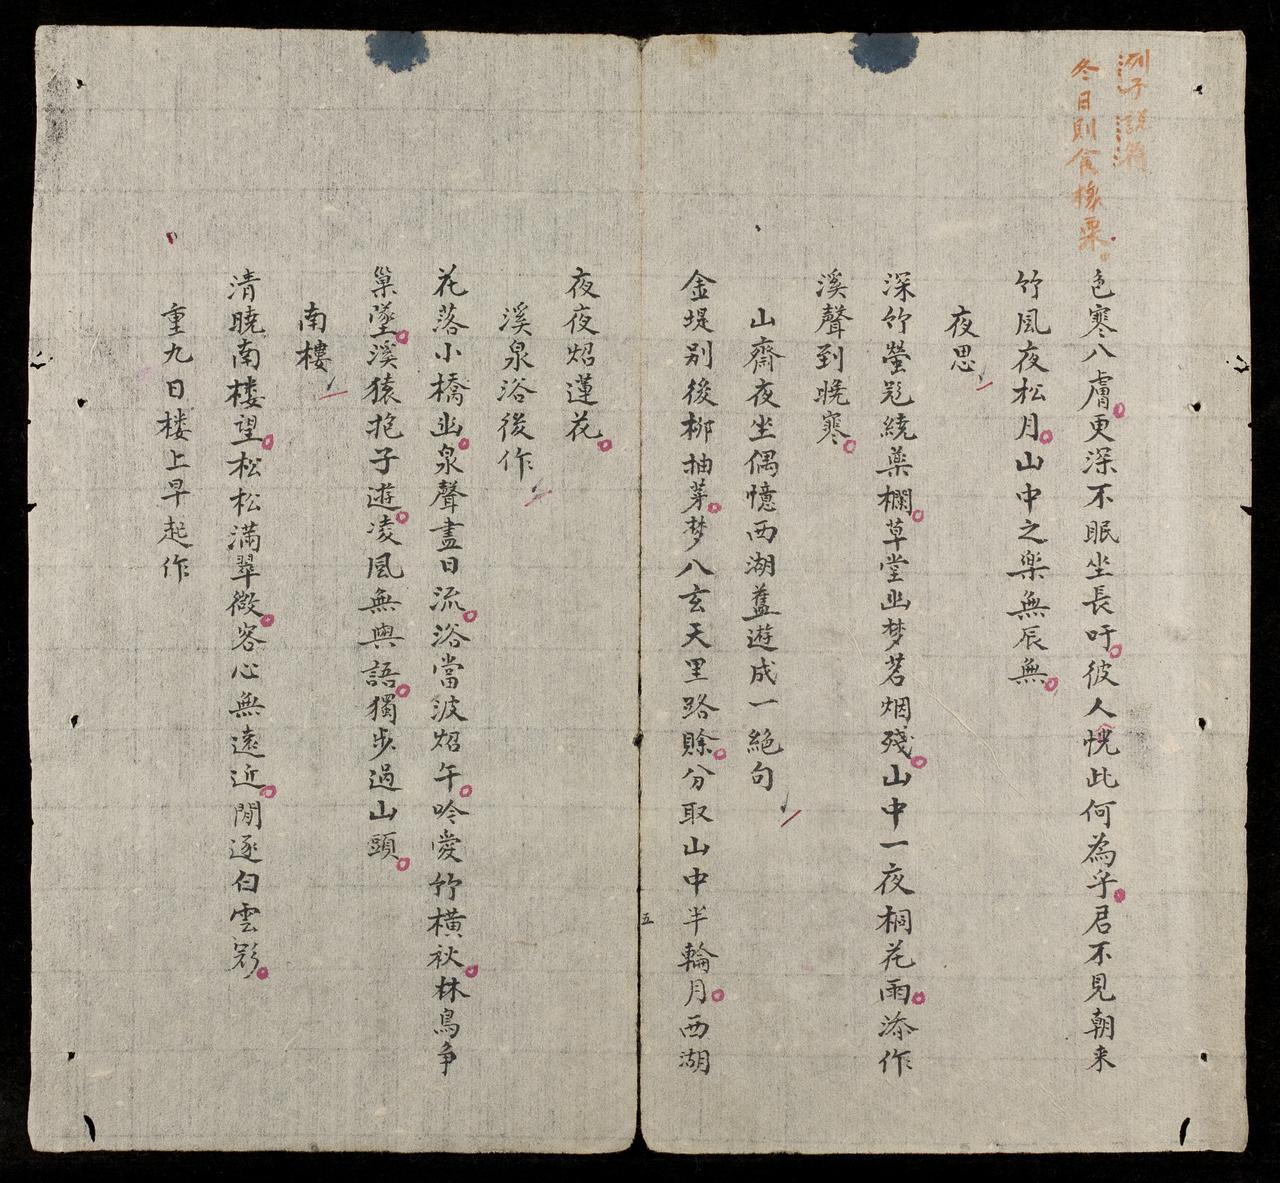 列子説符
冬日則食橡栗
色寒八膚更深不眠坐長吁彼人恍此何為乎君不見朝来
竹風夜松月山中之楽無辰無
夜思
深竹螢䨓繞薬欄草堂幽梦茗烟残山中一夜桐花雨添作
溪聲到晚寒
山齋夜坐偶憶西湖舊遊成一絶句
金堤別後柳抽芽梦八玄天里路賒分取山中半輪月西湖
五
夜夜炤蓮花
溪泉浴後作
花落小橋幽泉聲盡日流浴當波炤午吟愛竹横秋林鳥争
巢墜溪猿抱子遊凌風無與語獨步過山頭
南樓
清曉南楼望松松満翠微客心無遠近閒逐白雲
重九日楼上早起作